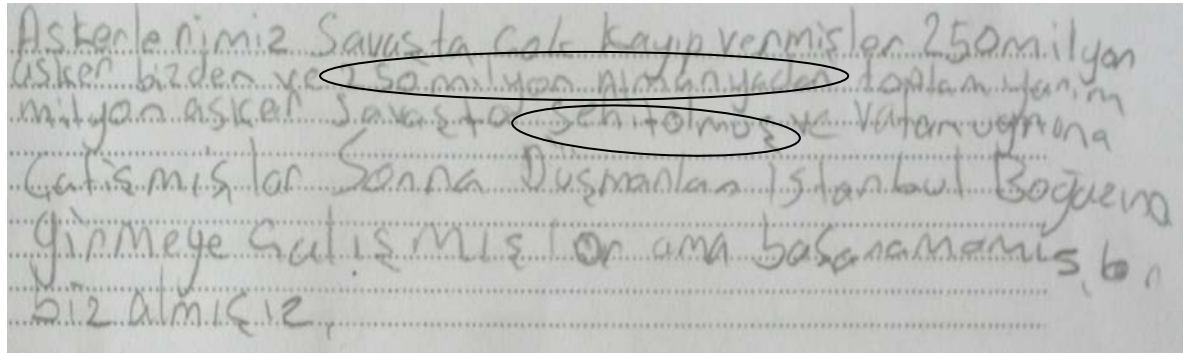 Askerlerimiz Savaşta çok kayıp vermişler 250milyon
asker bizden ve 250milyon Almanyadan toplam yarım
milyon asker Savaşta Şehitolmuş ve Vatan uğruna
Çatışmışlar Sonra Düşmanlar İstanbul Boğazına
girmeye çalışmışlar ama başaramamış
biz almışız.